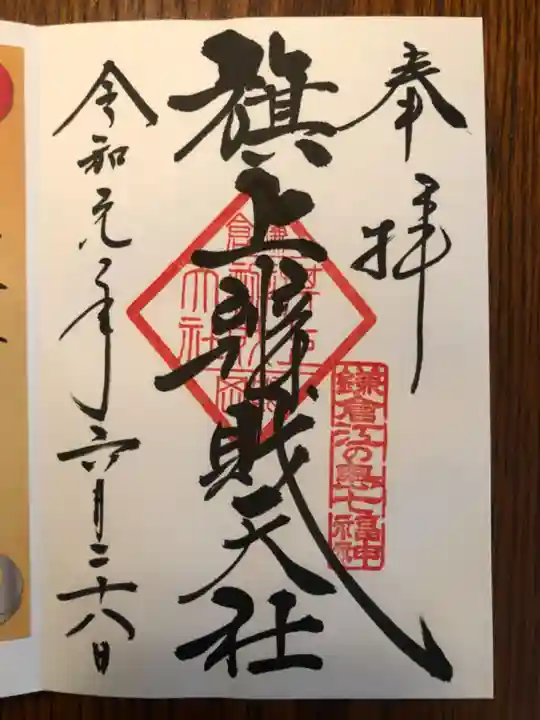 奉拝
旗上辨財天社
鎌倉江の島七福神
令和元年六月二十八日